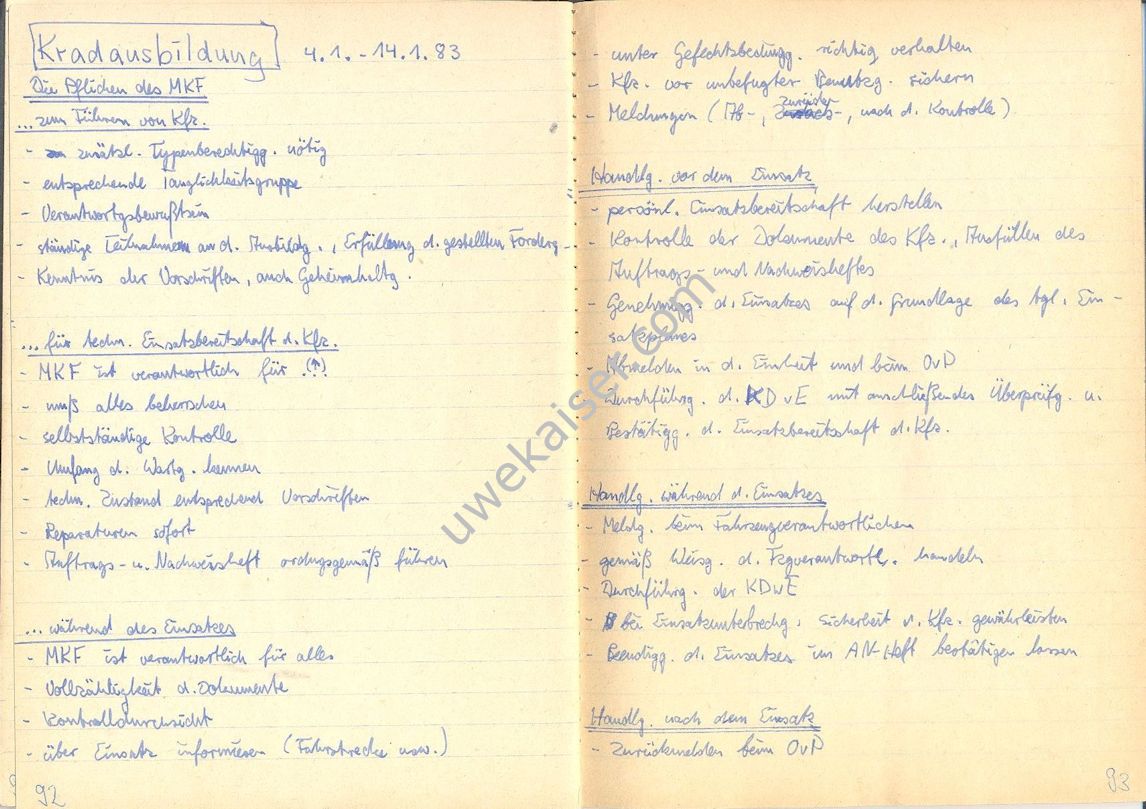 Kradausbildung 4.1.-14.1.83
Die Pflichen des MKF
...zum Führen von Kfz.
- zusätzl. Typenberechtigg. nötig
- entsprechende Tauglichkeitsgruppe
- Verantwortgsbewußtsein
- ständige Teilnahme an d. Ausbildg., Erfüllung d. gestellten Forderg.
- Kenntnis der Vorschriften, auch Geheimhaltg.
...für techn. Einsatzbereitschaft d. Kfz.
- MKF ist verantwortlich für (↑)
- muß alles beherrschen
- selbstständige Kontrolle
- Umfang d. Wartg. kennen
- techn. Zustand entsprechend Vorschriften
- Reparaturen sofort
- Auftrags- u. Nachweisheft ordngsgemäß führen
...während des Einsatzes
- MKF ist verantwortlich für alles
- Vollzähligkeit d. Dokumente
- Kontrolldurchsicht
- über Einsatz informieren (Fahrstrecke usw.)
92
- unter Gefechtsbedingg. richtig verhalten
- Kfz. vor unbefugter Benutzg. sichern
- Meldungen (Ab-, Zurück-, nach d. Kontrolle)
Handlg. vor dem Einsatz
- persönl. Einsatzbereitschaft herstellen
- Kontrolle der Dokumente des Kfz., Ausfüllen des
Auftrags- und Nachweisheftes
- Genehmigg. d. Einsatzes auf d. Grundlage des tgl. Ein-
satzplanes
- Abmelden in d. Einheit und beim OvP
- Durchführg. d. KDvE mit anschließendes Überprüfg. u.
Bestätigg. d. Einsatzbereitschaft d. Kfz.
Handlg. während d. Einsatzes
- Meldg. beim Fahrzeugverantwortlichen
- gemäß Weisg. d. Fzgverantwortl. handeln
- Durchführg. der KDwE
- bei Einsatzunterbrechg. Sicherheit d. Kfz. gewährleisten
- Beendigg. d. Einsatzes im AN-Heft bestätigen lassen
Handlg. nach dem Einsatz
- Zurückmelden beim OvP
93
uwekaiser.com